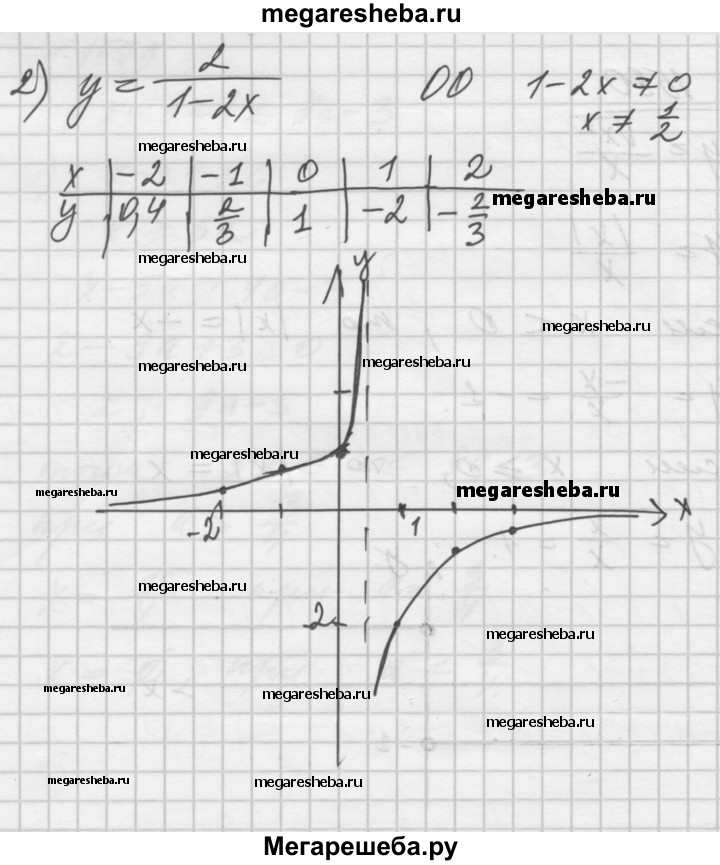 megaresheba.ru
2) y = 2/(1-2x) ОО 1-2x ≠ 0
x ≠ 1/2
megaresheba.ru
x | -2 | -1 | 0 | 1 | 2
y | 0,4 | 2/3 | 1 | -2 | -2/3
megaresheba.ru
megaresheba.ru
y
megaresheba.ru
megaresheba.ru
megaresheba.ru
megaresheba.ru
megaresheba.ru
megaresheba.ru
-2 1 x
megaresheba.ru
2
megaresheba.ru
megaresheba.ru
megaresheba.ru
megaresheba.ru
megaresheba.ru
megaresheba.ru
Мегарешеба.ру